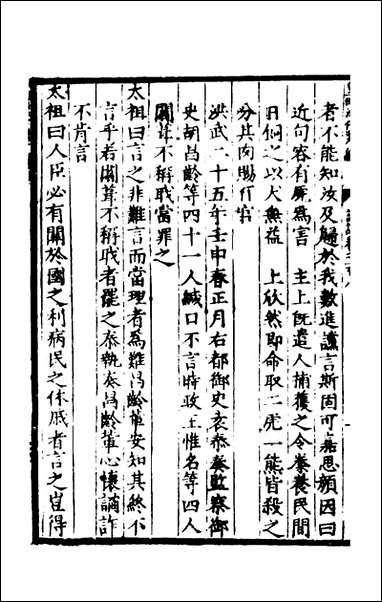 者不能知汝及歸於我數進讜言斯固可嘉思顏因曰
近句容有虎爲害　主上旣遣人捕獲之今豢養民間
日飼之以犬無益　上欣然即命取二虎一熊皆殺之
分其肉賜百官
洪武二十五年壬申春正月右都御史袁泰奏監察御
史胡昌齡等四十一人緘口不言時政王惟名等四人
闒茸不稱職當罪之
太祖曰言之非難言而當理者爲難昌齡輩安知其終不
言乎若闒茸不稱職者罷之泰執奏昌齡輩心懷譎詐
不肯言
太祖曰人臣必有關於國之利病民之休戚者言之豈得